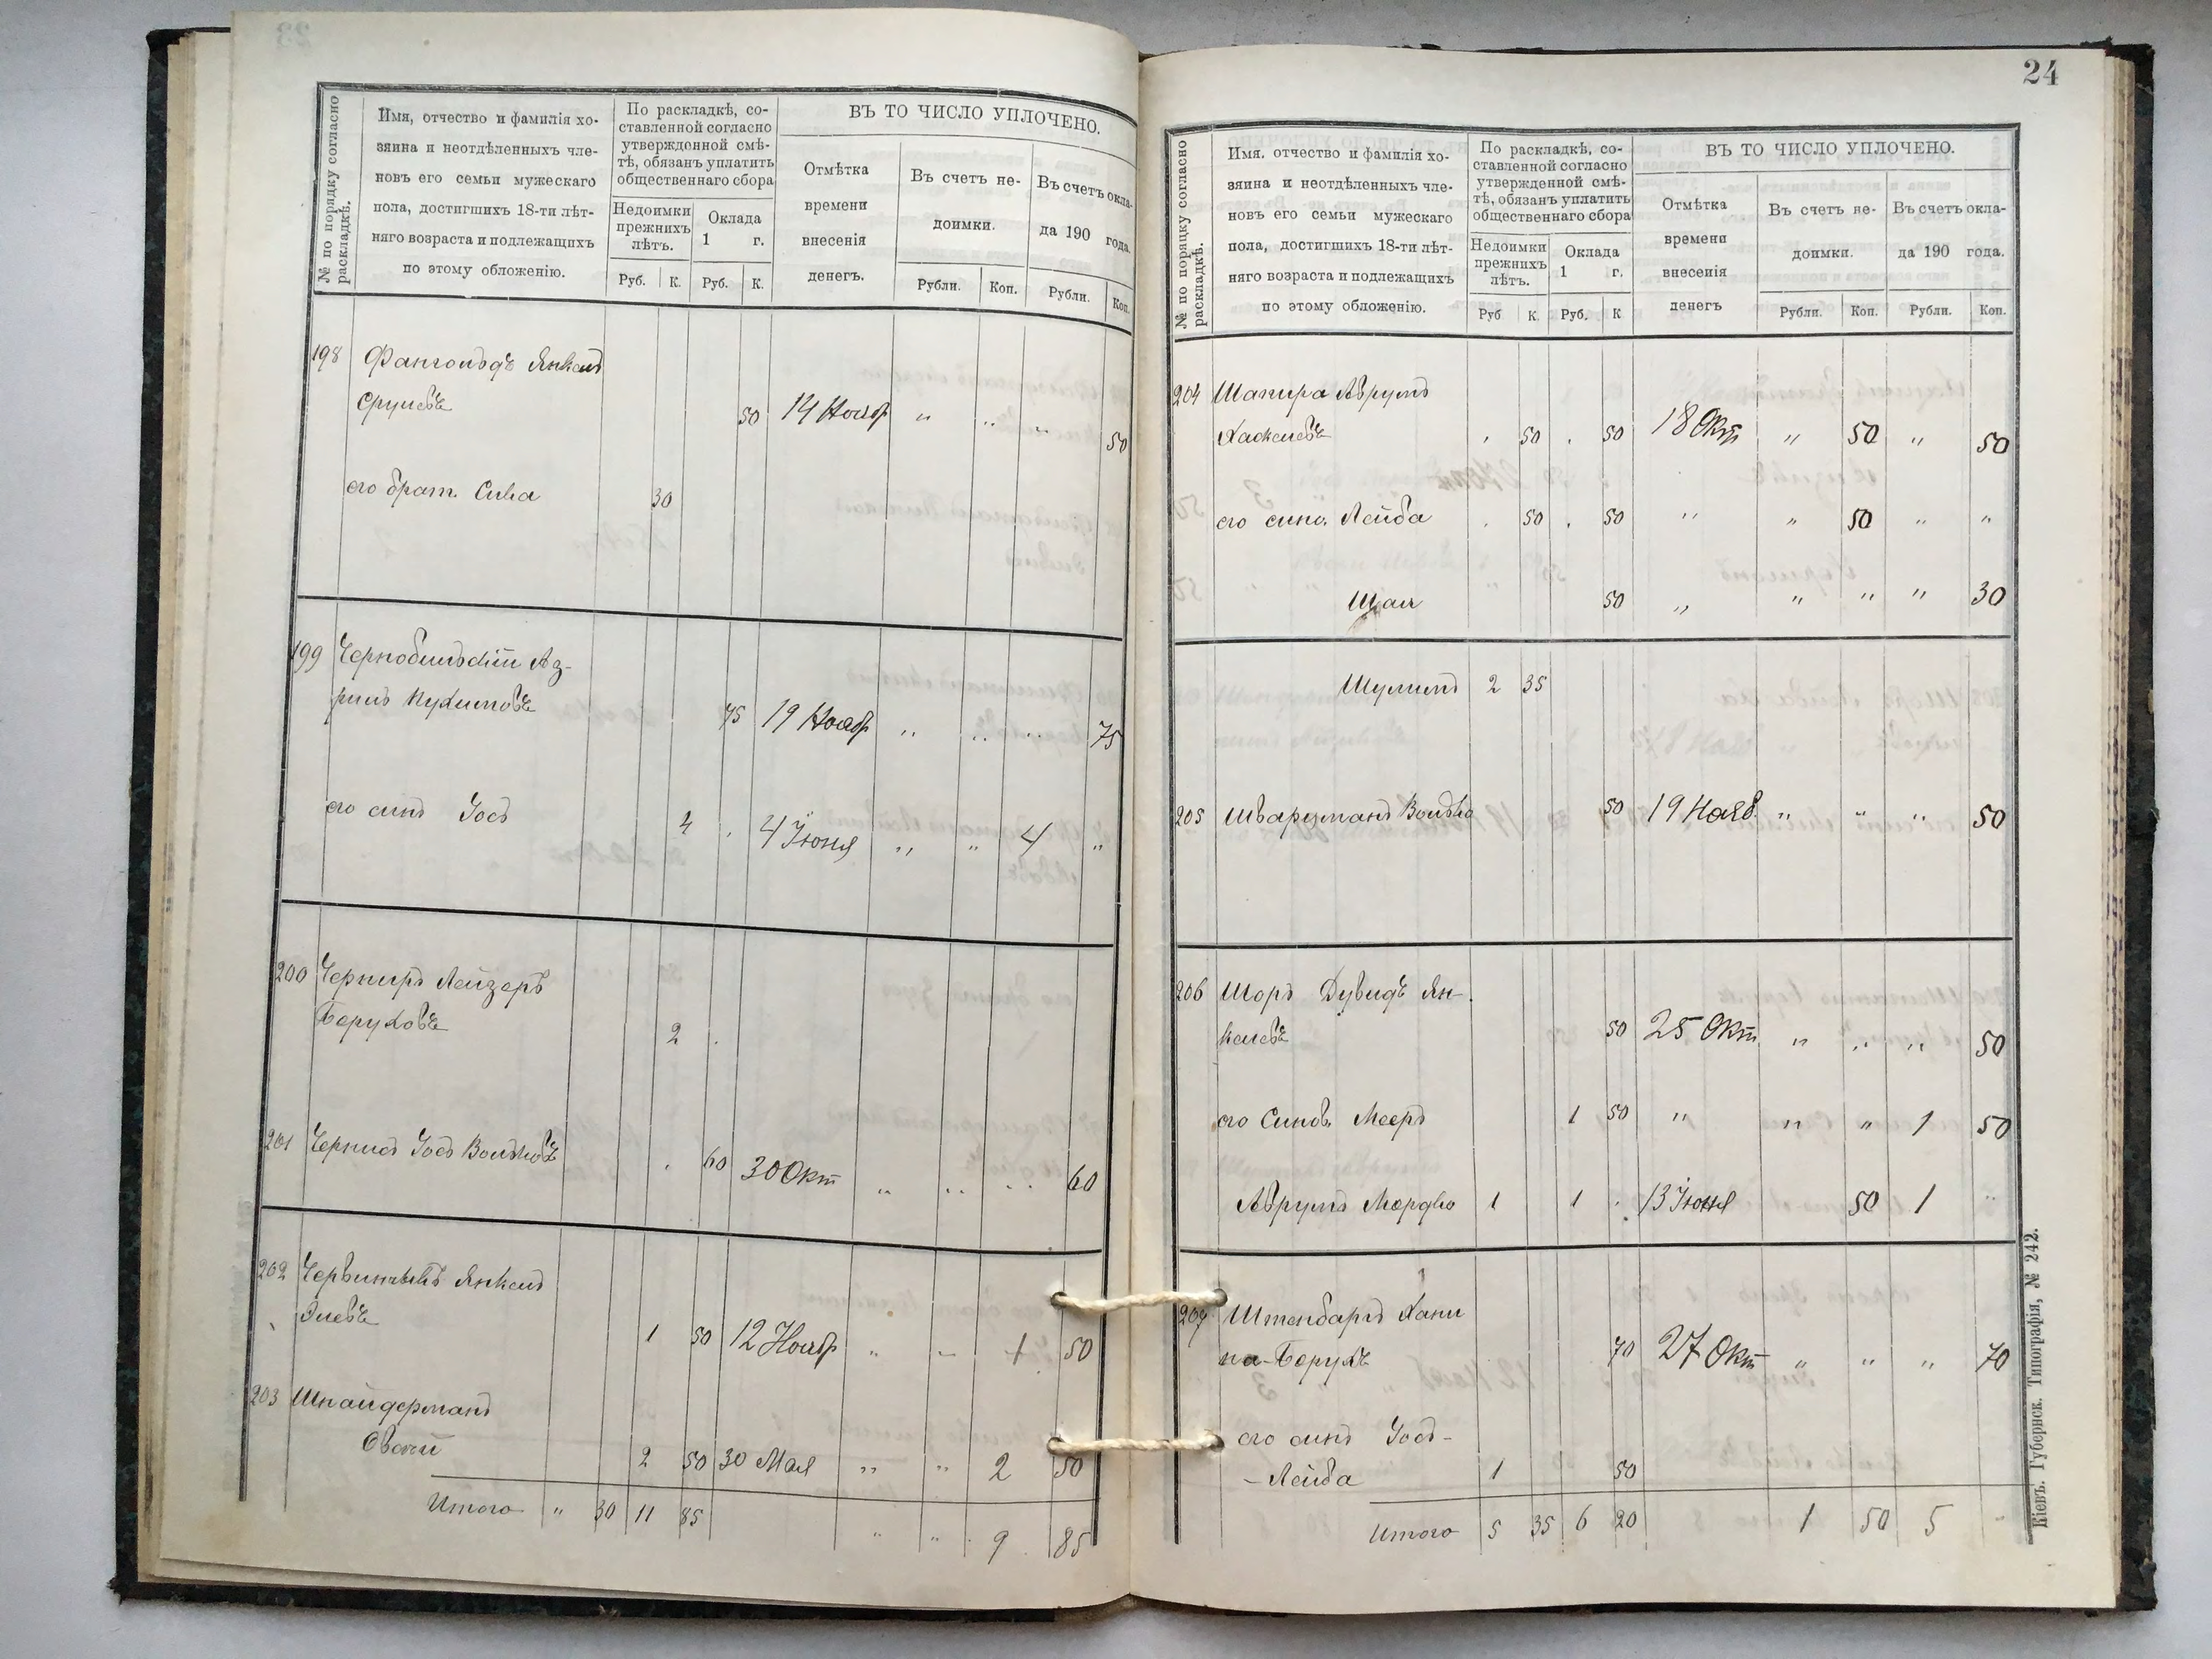 № по порядку согласно
раскладкѣ.
Имя, отчество и фамилія хо-
зяина и неотдѣленныхъ чле-
новъ его семьи мужескаго
пола, достигшихъ 18-ти лѣт-
няго возраста и подлежащихъ
по этому обложенію.
По раскладкѣ, со-
ставленной согласно
утвержденной смѣ-
тѣ, обязанъ уплатить
общественнаго сбора
Недоимки
прежнихъ
лѣтъ.
Оклада
1 г.
Руб. К. Руб. К.
ВЪ ТО ЧИСЛО УПЛОЧЕНО.
Отмѣтка
времени
внесенія
денегъ.
Въ счетъ не-
доимки.
Въ счетъ окла-
да 190 года.
Рубли. Коп. Рубли. Коп.
198 Фангольдъ Янкель
Срулевъ 50 14 Нояб " " " 50
его брат. Сива 30
199 Чернобыльскій Аз-
риль Нухимовъ 75 19 Нояб " " " 75
его сынъ Іось 4 . 4 Іюня " " 4 "
200 Чернирь Лейзеръ
Беруховъ 2 .
201 Чернисъ Іось Вольковъ . 60 30 Окт " " " 60
202 Червинскій Янкель
Элевъ 1 50 12 Нояб " " 1 50
203 Шнайдерманъ
Овсей 2 50 30 Мая " " 2 50
Итого " 30 11 85 " " 9 85
24
№ по порядку согласно
раскладкѣ.
Имя, отчество и фамилія хо-
зяина и неотдѣленныхъ чле-
новъ его семьи мужескаго
пола, достигшихъ 18-ти лѣт-
няго возраста и подлежащихъ
по этому обложенію.
По раскладкѣ, со-
ставленной согласно
утвержденной смѣ-
тѣ, обязанъ уплатить
общественнаго сбора
Недоимки
прежнихъ
лѣтъ.
Оклада
1 г.
Руб К. Руб. К
ВЪ ТО ЧИСЛО УПЛОЧЕНО.
Отмѣтка
времени
внесенія
денегъ
Въ счетъ не-
доимки.
Въ счетъ окла-
да 190 года.
Рубли. Коп. Рубли. Коп.
204 Шапира Аврумъ
Хаскелевъ . 50 . 50 18 Окт " 50 " 50
его сыно. Лейба . 50 . 50 " " 50 " "
Шая 50 " " " " 30
Шулимъ 2 35
205 Шварцманъ Волько 50 19 Нояб. " " " 50
206 Шоръ Дувидъ Ян-
келевъ 50 25 Окт " " " 50
его Сынов. Мееръ 1 50 " " " 1 50
Аврумъ Мордко 1 1 . 13 Іюня 50 1 "
207 Штенбаргъ Хани
на-Берухъ 70 27 Окт " " " 70
его сынъ Іось-
-Лейба 1 50
Итого 5 35 6 20 1 50 5 -
Кіевъ. Губернск. Типографія, № 242.